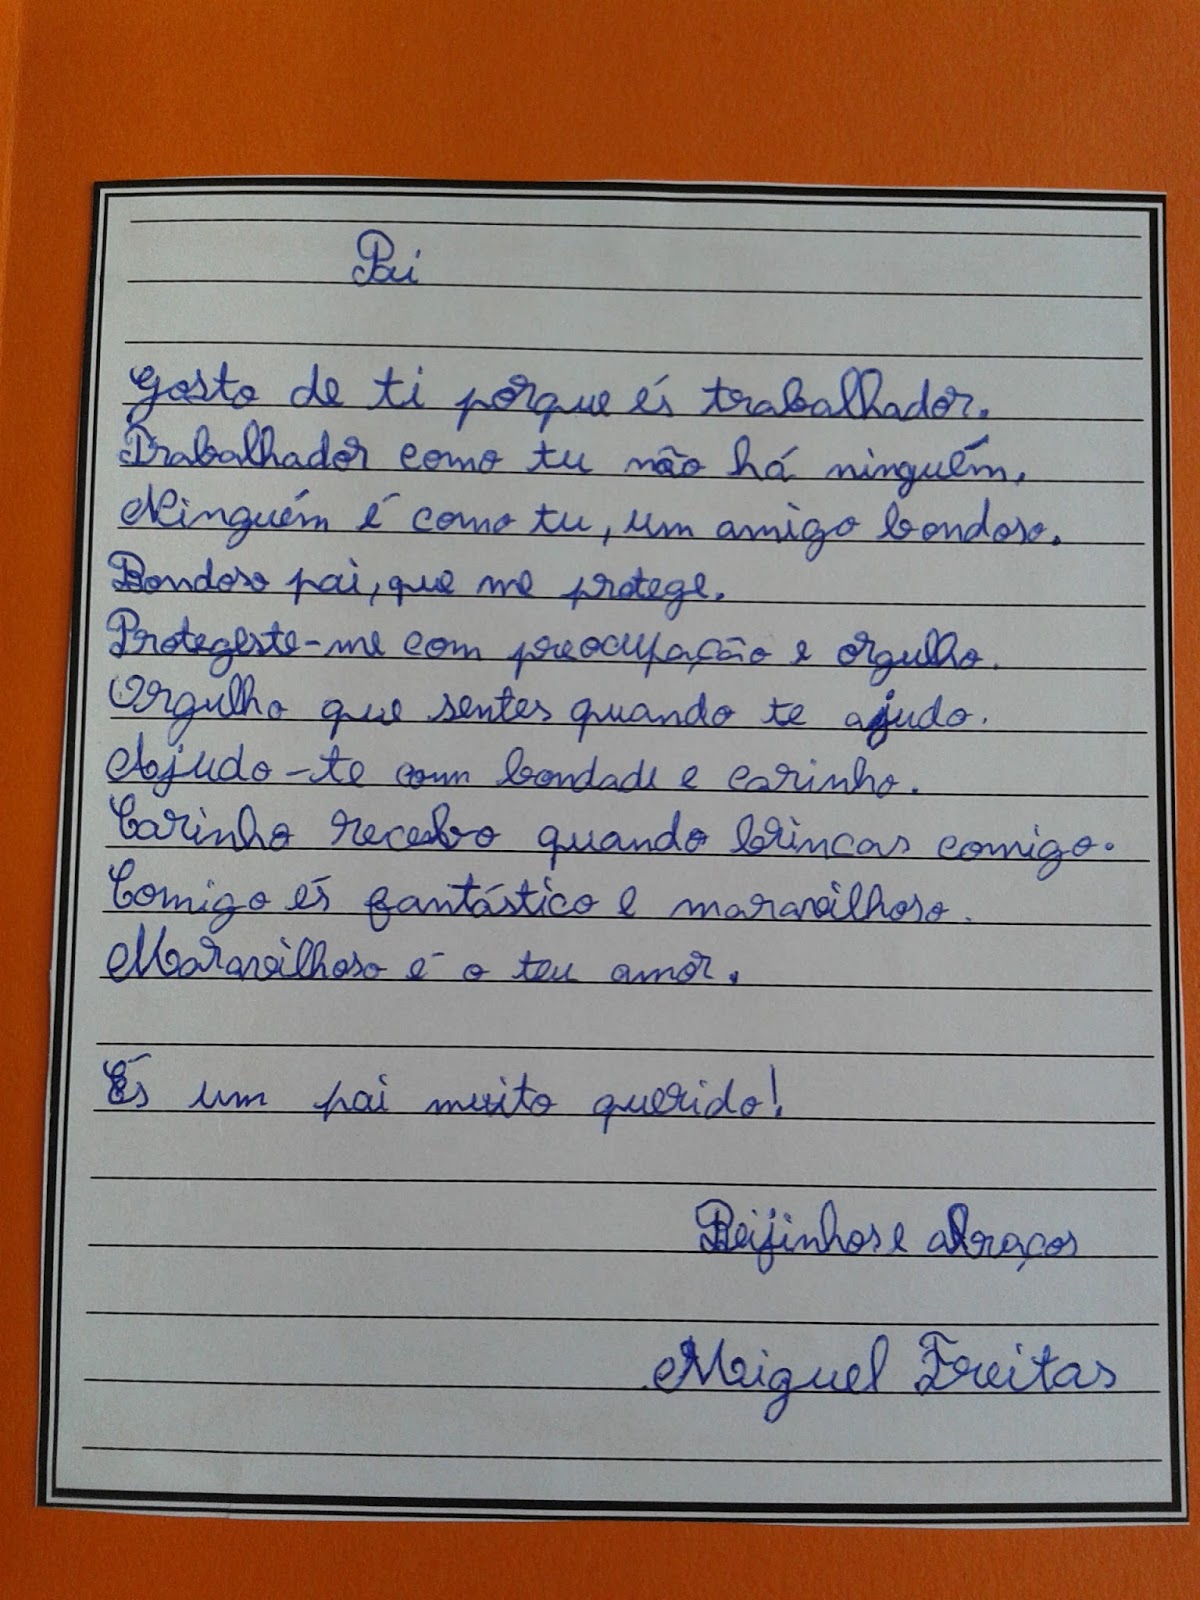 Pai
Gosto de ti porque és trabalhador.
Trabalhador como tu não há ninguém.
Ninguém é como tu, um amigo bondoso.
Bondoso pai, que me protege.
Protegeste-me com preocupação e orgulho.
Orgulho que sentes quando te ajudo.
Ajudo-te com bondade e carinho.
Carinho recebo quando brincas comigo.
Comigo és fantástico e maravilhoso.
Maravilhoso é o teu amor.
És um pai muito querido!
Beijinhos e abraços
Miguel Freitas